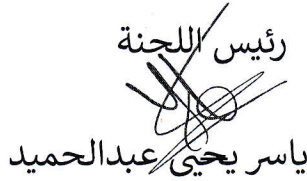 رئيس اللجنة
ياسر يحيى عبدالحميد